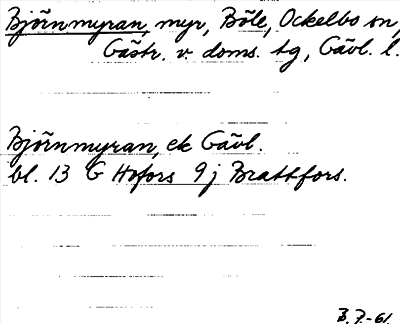 Björnmyran, myr, Böle, Ockelbo sn,
Gästr. v. doms. tg, Gävl. l.
Björnmyran, ek Gävl.
bl. 13 G Hofors 9j Brattfors.
B.P.-61.